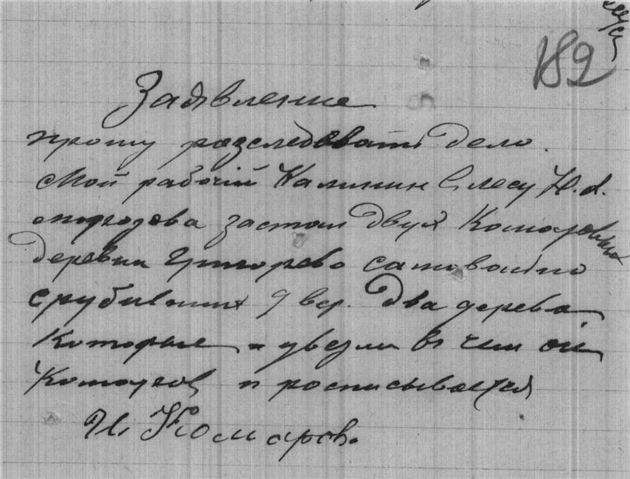 182
Заявление
прошу разследовать дело.
Мой рабочий Калинин в лесу Н. А.
застал двух Комаровых
деревни Григорево самовольно
срубивших 9 вер. два дерева
которые и увезли в чем он
Комаров и росписывается
И. Комаров.